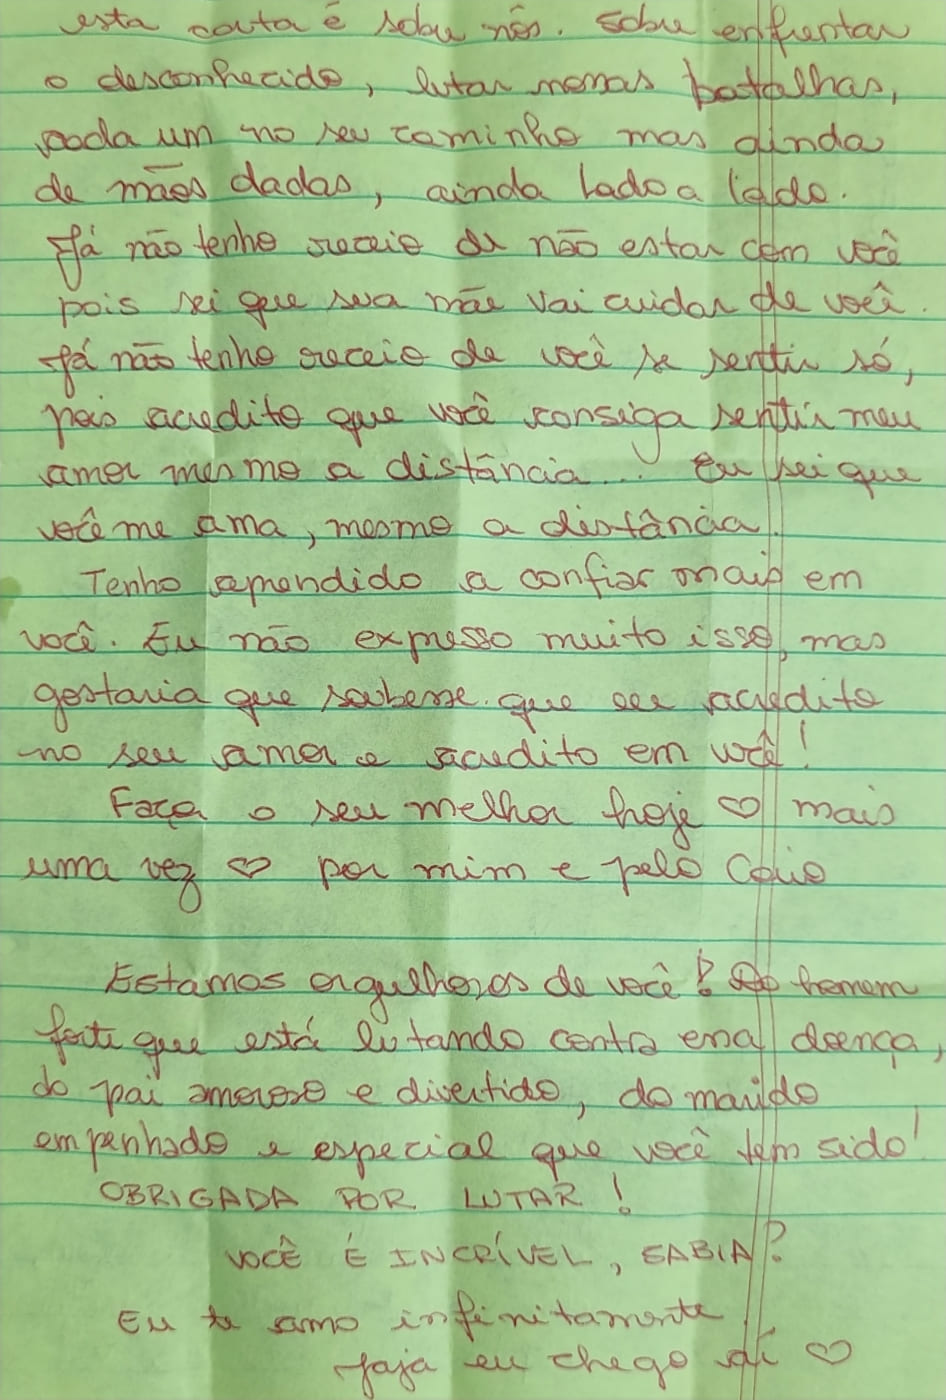 esta carta é sobre nós. Sobre enfrentar
o desconhecido, lutar nossas batalhas,
cada um no seu caminho mas ainda
de mãos dadas, ainda lado a lado.
Já não tenho receio de não estar com você
pois sei que sua mãe vai cuidar de você.
Já não tenho receio de você se sentir só,
pois acredito que você consiga sentir meu
amor mesmo a distância... Eu sei que
você me ama, mesmo a distância.
Tenho aprendido a confiar mais em
você. Eu não expresso muito isso, mas
gostaria que soubesse que eu acredito
no seu amor e acredito em você!
Faça o seu melhor hoje ♡ mais
uma vez ♡ por mim e pelo Caio
Estamos orgulhosos de você! Do homem
forte que está lutando contra essa doença,
do pai amoroso e divertido, do marido
empenhado e especial que você tem sido!
OBRIGADA POR LUTAR!
VOCÊ É INCRÍVEL, SABIA?
Eu te amo infinitamente
Jaja eu chego aí ♡